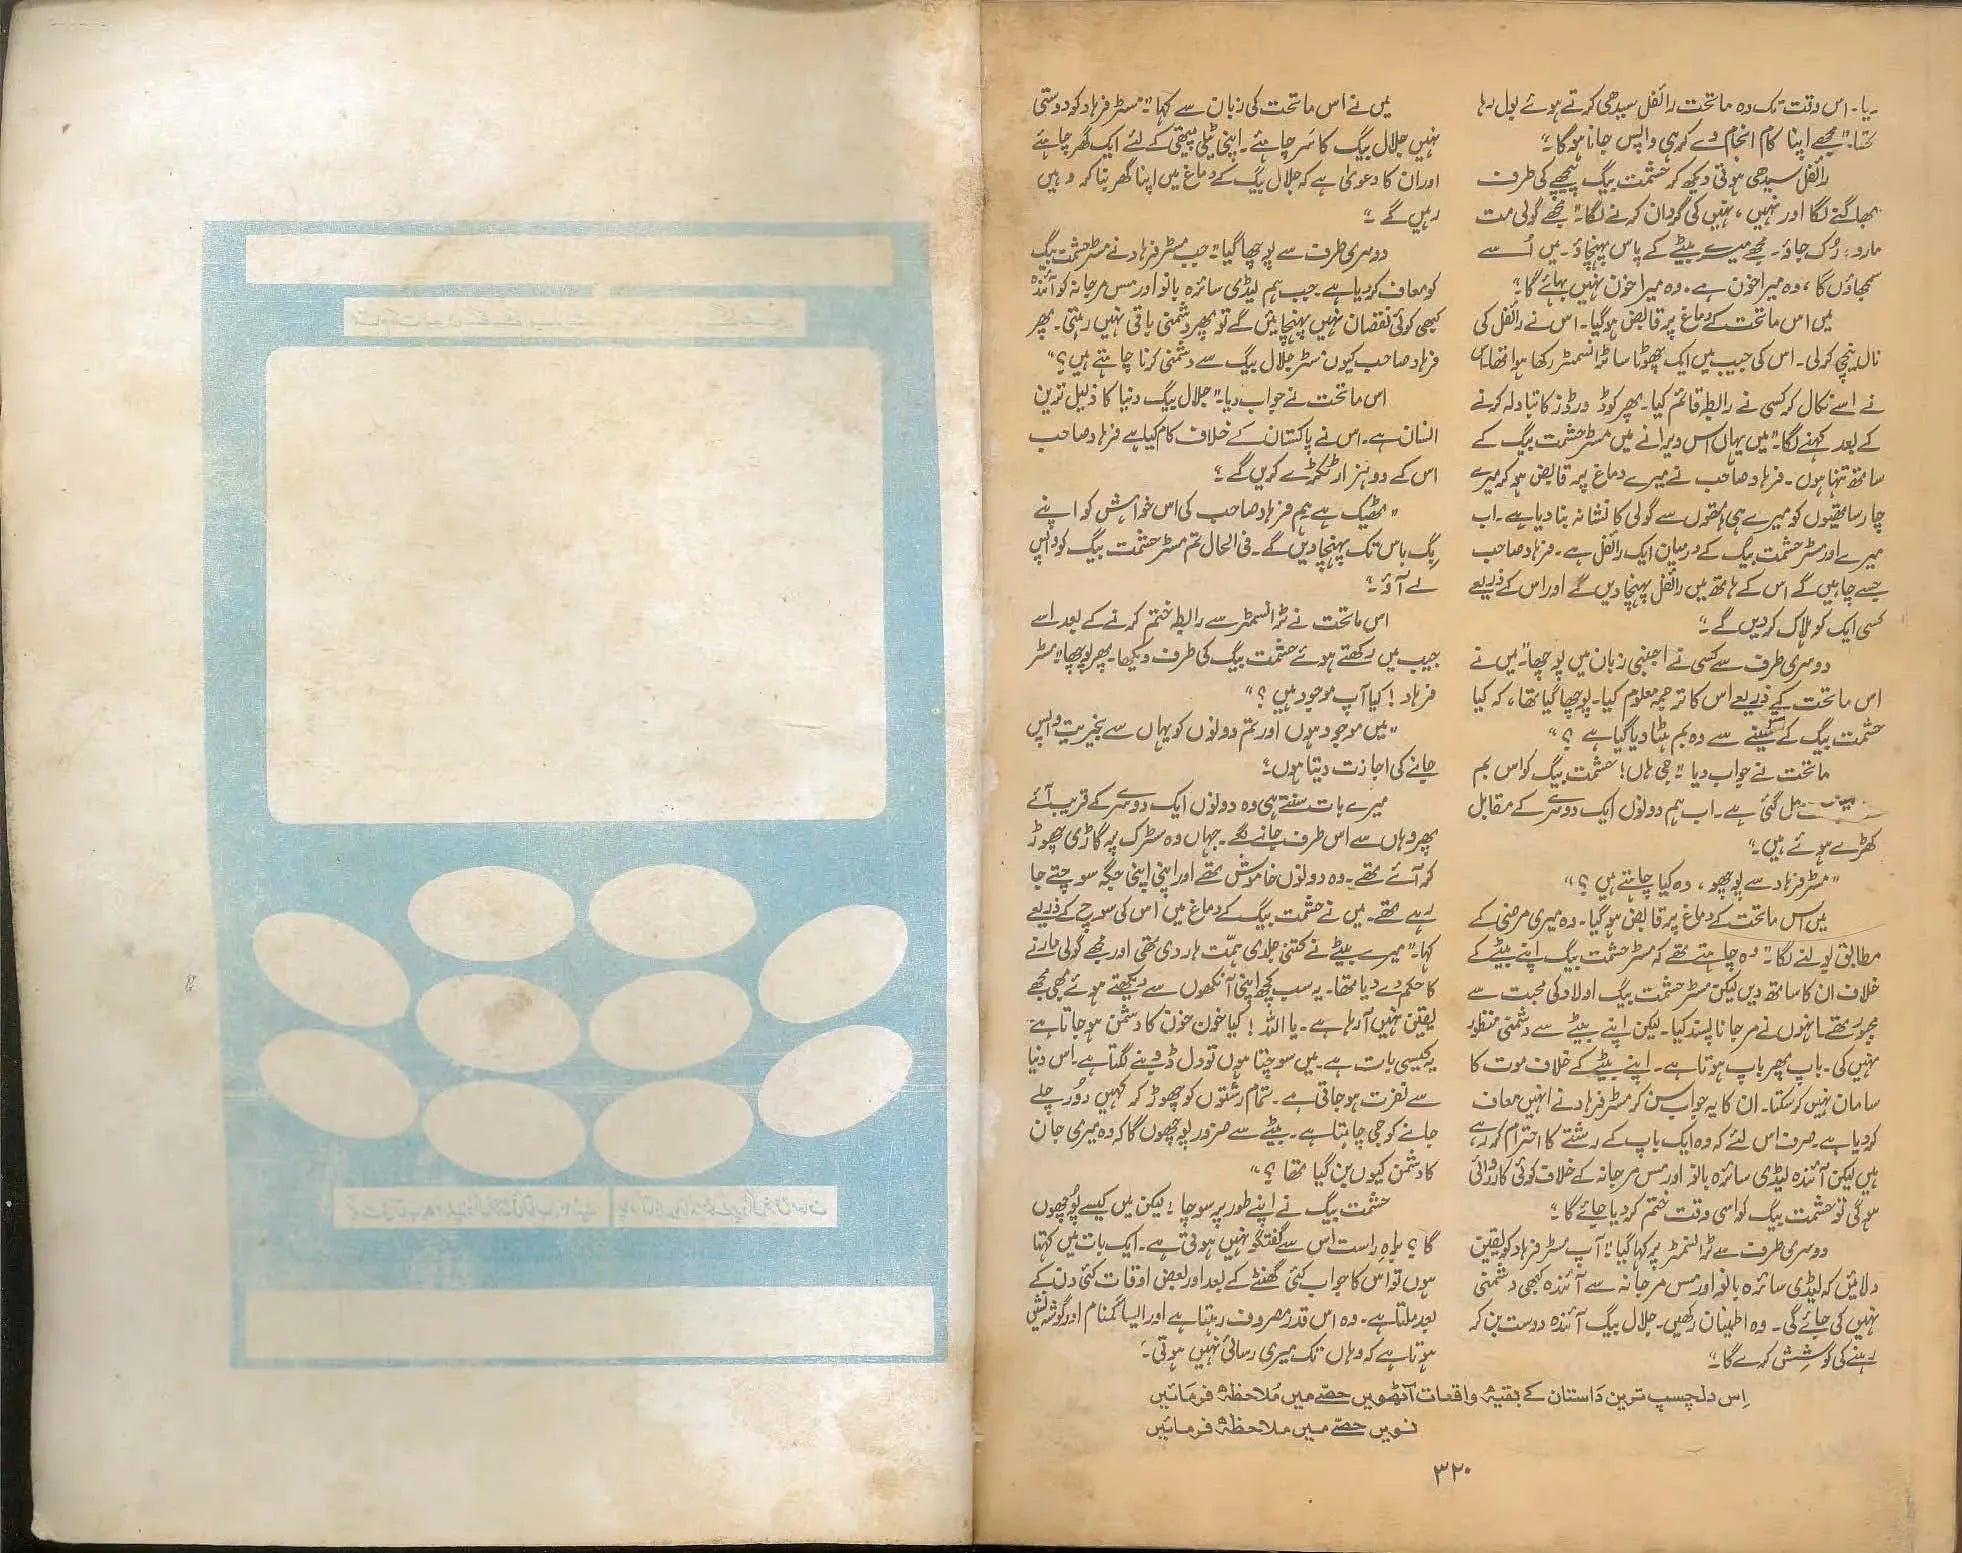 دیا۔ اس وقت تک وہ ماتحت رائفل سیدھی کرتے ہوئے بول رہا
تھا۔" مجھے اپنا کام انجام دے کر ہی واپس جانا ہو گا۔"
رائفل سیدھی ہوتی دیکھ کر حشمت بیگ پیچھے کی طرف
بھاگنے لگا اور نہیں، نہیں کی گردان کرنے لگا۔" مجھے گولی مت
مارو، رُک جاؤ۔ مجھے میرے بیٹے کے پاس پہنچاؤ۔ میں اُسے
سمجھاؤں گا، وہ میرا خون ہے۔ وہ میرا خون نہیں بہائے گا۔"
میں اس ماتحت کے دماغ پر قابض ہو گیا۔ اس نے رائفل کی
نال نیچی کر لی۔ اس کی جیب میں ایک چھوٹا سا ٹرانسمٹر رکھا ہوا تھا اس
نے اسے نکال کر کسی نے رابطہ قائم کیا۔ پھر کوڈ ورڈز کا تبادلہ کرنے
کے بعد کہنے لگا۔" میں یہاں اس ویرانے میں مسٹر حشمت بیگ کے
ساتھ تنہا ہوں۔ فرہاد صاحب نے میرے دماغ پر قابض ہو کر میرے
چار ساتھیوں کو میرے ہی ہاتھوں سے گولی کا نشانہ بنا دیا ہے۔ اب
میرے اور مسٹر حشمت بیگ کے درمیان ایک رائفل ہے۔ فرہاد صاحب
جسے چاہیں گے اس کے ہاتھ میں رائفل پہنچا دیں گے اور اس کے ذریعے
کسی ایک کو ہلاک کر دیں گے۔"
دوسری طرف سے کسی نے اجنبی زبان میں پوچھا۔" میں نے
اس ماتحت کے ذریعے اس کا ترجمہ معلوم کیا۔ پوچھا گیا تھا، کہ کیا
حشمت بیگ کے سینے سے وہ بم ہٹا دیا گیا ہے؟"
ماتحت نے جواب دیا۔" جی ہاں! حشمت بیگ کو اس بم
سے مل گئی ہے۔ اب ہم دونوں ایک دوسرے کے مقابل
کھڑے ہوئے ہیں۔"
"مسٹر فرہاد سے پوچھو، وہ کیا چاہتے ہیں؟"
میں اس ماتحت کے دماغ پر قابض ہو گیا۔ وہ میری مرضی کے
مطابق بولنے لگا۔" وہ چاہتے تھے کہ مسٹر حشمت بیگ اپنے بیٹے کے
خلاف ان کا ساتھ دیں لیکن مسٹر حشمت بیگ اولاد کی محبت سے
مجبور تھے۔ انہوں نے مر جانا پسند کیا۔ لیکن اپنے بیٹے سے دشمنی منظور
نہیں کی۔ باپ پھر باپ ہوتا ہے۔ اپنے بیٹے کے خلاف موت کا
سامان نہیں کر سکتا۔ ان کا یہ جواب سن کر مسٹر فرہاد نے انہیں معاف
کر دیا ہے۔ صرف اس لئے کہ وہ ایک باپ کے رشتے کا احترام کر رہے
ہیں لیکن آئندہ لیڈی سائرہ بانو اور مس مرجانہ کے خلاف کوئی کارروائی
ہو گی تو حشمت بیگ کو اسی وقت ختم کر دیا جائے گا۔"
دوسری طرف سے ٹرانسمٹر پر کہا گیا۔" آپ مسٹر فرہاد کو یقین
دلائیں کہ لیڈی سائرہ بانو اور مس مرجانہ سے آئندہ کبھی دشمنی
نہیں کی جائے گی۔ وہ اطمینان رکھیں۔ جلال بیگ آئندہ دوست بن کر
رہنے کی کوشش کرے گا۔"
میں نے اس ماتحت کی زبان سے کہا۔" مسٹر فرہاد کو دوستی
نہیں جلال بیگ کا سَر چاہئے۔ اپنی ٹیلی پیتھی کے لئے ایک گھر چاہئے
اور ان کا دعویٰ ہے کہ جلال بیگ کے دماغ میں اپنا گھر بنا کر وہیں
رہیں گے۔"
دوسری طرف سے پوچھا گیا۔" جب مسٹر فرہاد نے مسٹر حشمت بیگ
کو معاف کر دیا ہے۔ جب ہم لیڈی سائرہ بانو اور مس مرجانہ کو آئندہ
کبھی کوئی نقصان نہیں پہنچائیں گے تو پھر دشمنی باقی نہیں رہتی۔ پھر
فرہاد صاحب کیوں مسٹر جلال بیگ سے دشمنی کرنا چاہتے ہیں؟"
اس ماتحت نے جواب دیا۔" جلال بیگ دنیا کا ذلیل ترین
انسان ہے۔ اس نے پاکستان کے خلاف کام کیا ہے فرہاد صاحب
اس کے دو ہزار ٹکڑے کریں گے۔"
"ٹھیک ہے ہم فرہاد صاحب کی اس خواہش کو اپنے
بِگ باس تک پہنچا دیں گے۔ فی الحال تم مسٹر حشمت بیگ کو واپس
لے آؤ۔"
اس ماتحت نے ٹرانسمٹر سے رابطہ ختم کرنے کے بعد اسے
جیب میں رکھتے ہوئے حشمت بیگ کی طرف دیکھا۔ پھر پوچھا۔" مسٹر
فرہاد! کیا آپ موجود ہیں؟"
"میں موجود ہوں اور تم دونوں کو یہاں سے بخیریت واپس
جانے کی اجازت دیتا ہوں۔"
میرے بات سنتے ہی وہ دونوں ایک دوسرے کے قریب آئے
پھر وہاں سے اس طرف جانے لگے۔ جہاں وہ سڑک پر گاڑی چھوڑ
کر آئے تھے۔ وہ دونوں خاموش تھے اور اپنی اپنی جگہ سوچتے جا
رہے تھے۔ میں نے حشمت بیگ کے دماغ میں اس کی سوچ کے ذریعے
کہا۔" میرے بیٹے نے کتنی جلدی ہمّت ہار دی تھی اور مجھے گولی مارنے
کا حکم دے دیا تھا۔ یہ سب کچھ اپنی آنکھوں سے دیکھتے ہوئے بھی مجھے
یقین نہیں آ رہا ہے۔ یا اللہ! کیا خون خون کا دشمن ہو جاتا ہے
یہ کیسی بات ہے۔ میں سوچتا ہوں تو دل ڈوبنے لگتا ہے۔ اس دنیا
سے نفرت ہو جاتی ہے۔ تمام رشتوں کو چھوڑ کر کہیں دُور چلے
جانے کو جی چاہتا ہے۔ بیٹے سے ضرور پوچھوں گا کہ وہ میری جان
کا دشمن کیوں بن گیا تھا؟"
حشمت بیگ نے اپنے طور پر سوچا۔" لیکن میں کیسے پُوچھوں
گا؟ براہِ راست اس سے گفتگو نہیں ہوتی ہے۔ ایک بات میں کہتا
ہوں تو اس کا جواب کئی گھنٹے کے بعد اور بعض اوقات کئی دن کے
بعد ملتا ہے۔ وہ اس قدر مصروف رہتا ہے اور ایسا گمنام اور گوشہ نشیں
ہوتا ہے کہ وہاں تک میری رسائی نہیں ہوتی۔"
اِس دلچسپ ترین دَاستان کے بقیہ واقعات آٹھویں حصّے میں مُلاحظہ فرمَائیں
نویں حصّے میں ملاحظہ فرمائیں
۳۲۰